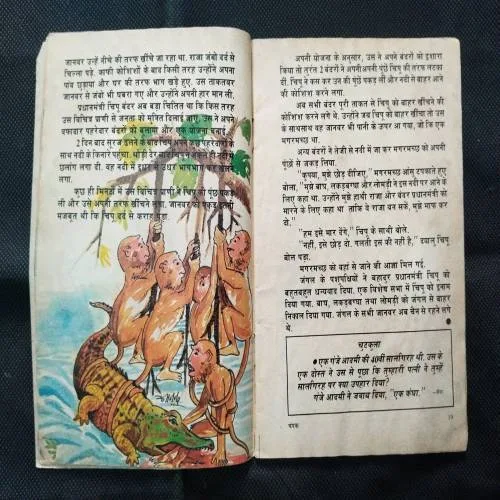 जानवर उन्हें नीचे की तरफ खींचे जा रहा था. राजा जंबो दर्द से
चिल्ला पड़े. काफी कोशिशों के बाद किसी तरह उन्होंने अपना
पांव छुड़ाया और घर की तरफ भाग खड़े हुए. उस ताकतवर
जानवर से जंबो भी घबरा गए और उन्होंने अपनी हार मान ली.
प्रधानमंत्री चिपु बंदर अब बड़ा चिंतित था कि किस तरह
उस विचित्र प्राणी से जनता को मुक्ति दिलाई जाए. उस ने अपने
वफादार पहरेदार बंदरों को बुलाया और एक योजना बनाई.
2 दिन बाद सूरज ढलने के बाद चिपु अपने कुछ पहरेदारों के
साथ नदी के किनारे पहुंचा. थोड़ी देर बाद चिपु ने अकेले ही नदी में
छलांग लगा दी. वह नदी में इधर से उधर भागभाग कर खेलने
लगा.
कुछ ही मिनटों में उस विचित्र प्राणी ने चिपु की पूंछ पकड़
ली और उसे अपनी तरफ खींचने लगा. जानवर की पकड़ इतनी
मजबूत थी कि चिपु दर्द से कराह उठा.
अपनी योजना के अनुसार, उस ने अपने बंदरों को इशारा
किया तो तुरंत 2 बंदरों ने अपनीअपनी पूंछें चिपु की तरफ लटका
दीं. चिपु ने कस कर उन की पूंछें पकड़ लीं और नदी से बाहर आने
की कोशिश करने लगा.
अब सभी बंदर पूरी ताकत से चिपु को बाहर खींचने की
कोशिश करने लगे थे. उन्होंने जब चिपु को बाहर खींचा तो उस
के साथसाथ वह जानवर भी पानी के ऊपर आ गया, जो कि एक
मगरमच्छ था.
अन्य बंदरों ने तेजी से नदी में जा कर मगरमच्छ को अपनी
पूंछों से जकड़ लिया.
"कृपया, मुझे छोड़ दीजिए," मगरमच्छ आंसू टपकाते हुए
बोला, "मुझे बाघ, लकड़बग्घा और लोमड़ी ने इस नदी पर आने के
लिए कहा था. उन्होंने मुझे हाथी राजा और बंदर प्रधानमंत्री को
मारने के लिए कहा था ताकि वे राजा बन सकें, मुझे माफ कर
दो."
"हम इसे मार देंगे," चिपु के साथी बोले.
"नहीं, इसे छोड़ दो. गलती इस की नहीं है," दयालु चिपु
बोल पड़ा.
मगरमच्छ को वहां से जाने की आज्ञा मिल गई.
जंगल के पशुपक्षियों ने बहादुर प्रधानमंत्री चिपु को
बहुतबहुत धन्यवाद दिया. एक विशेष सभा में चिपु को इनाम
दिया गया. बाघ, लकड़बग्घा तथा लोमड़ी को जंगल से बाहर
निकाल दिया गया. जंगल के सभी जानवर अब चैन से रहने लगे
थे.
चुटकला
● एक गंजे आदमी की 40वीं सालगिरह थी. उस के
एक दोस्त ने उस से पूछा कि तुम्हारी पत्नी ने तुम्हें
सालगिरह पर क्या उपहार दिया?
गंजे आदमी ने जवाब दिया, "एक कंघा."
चंपक